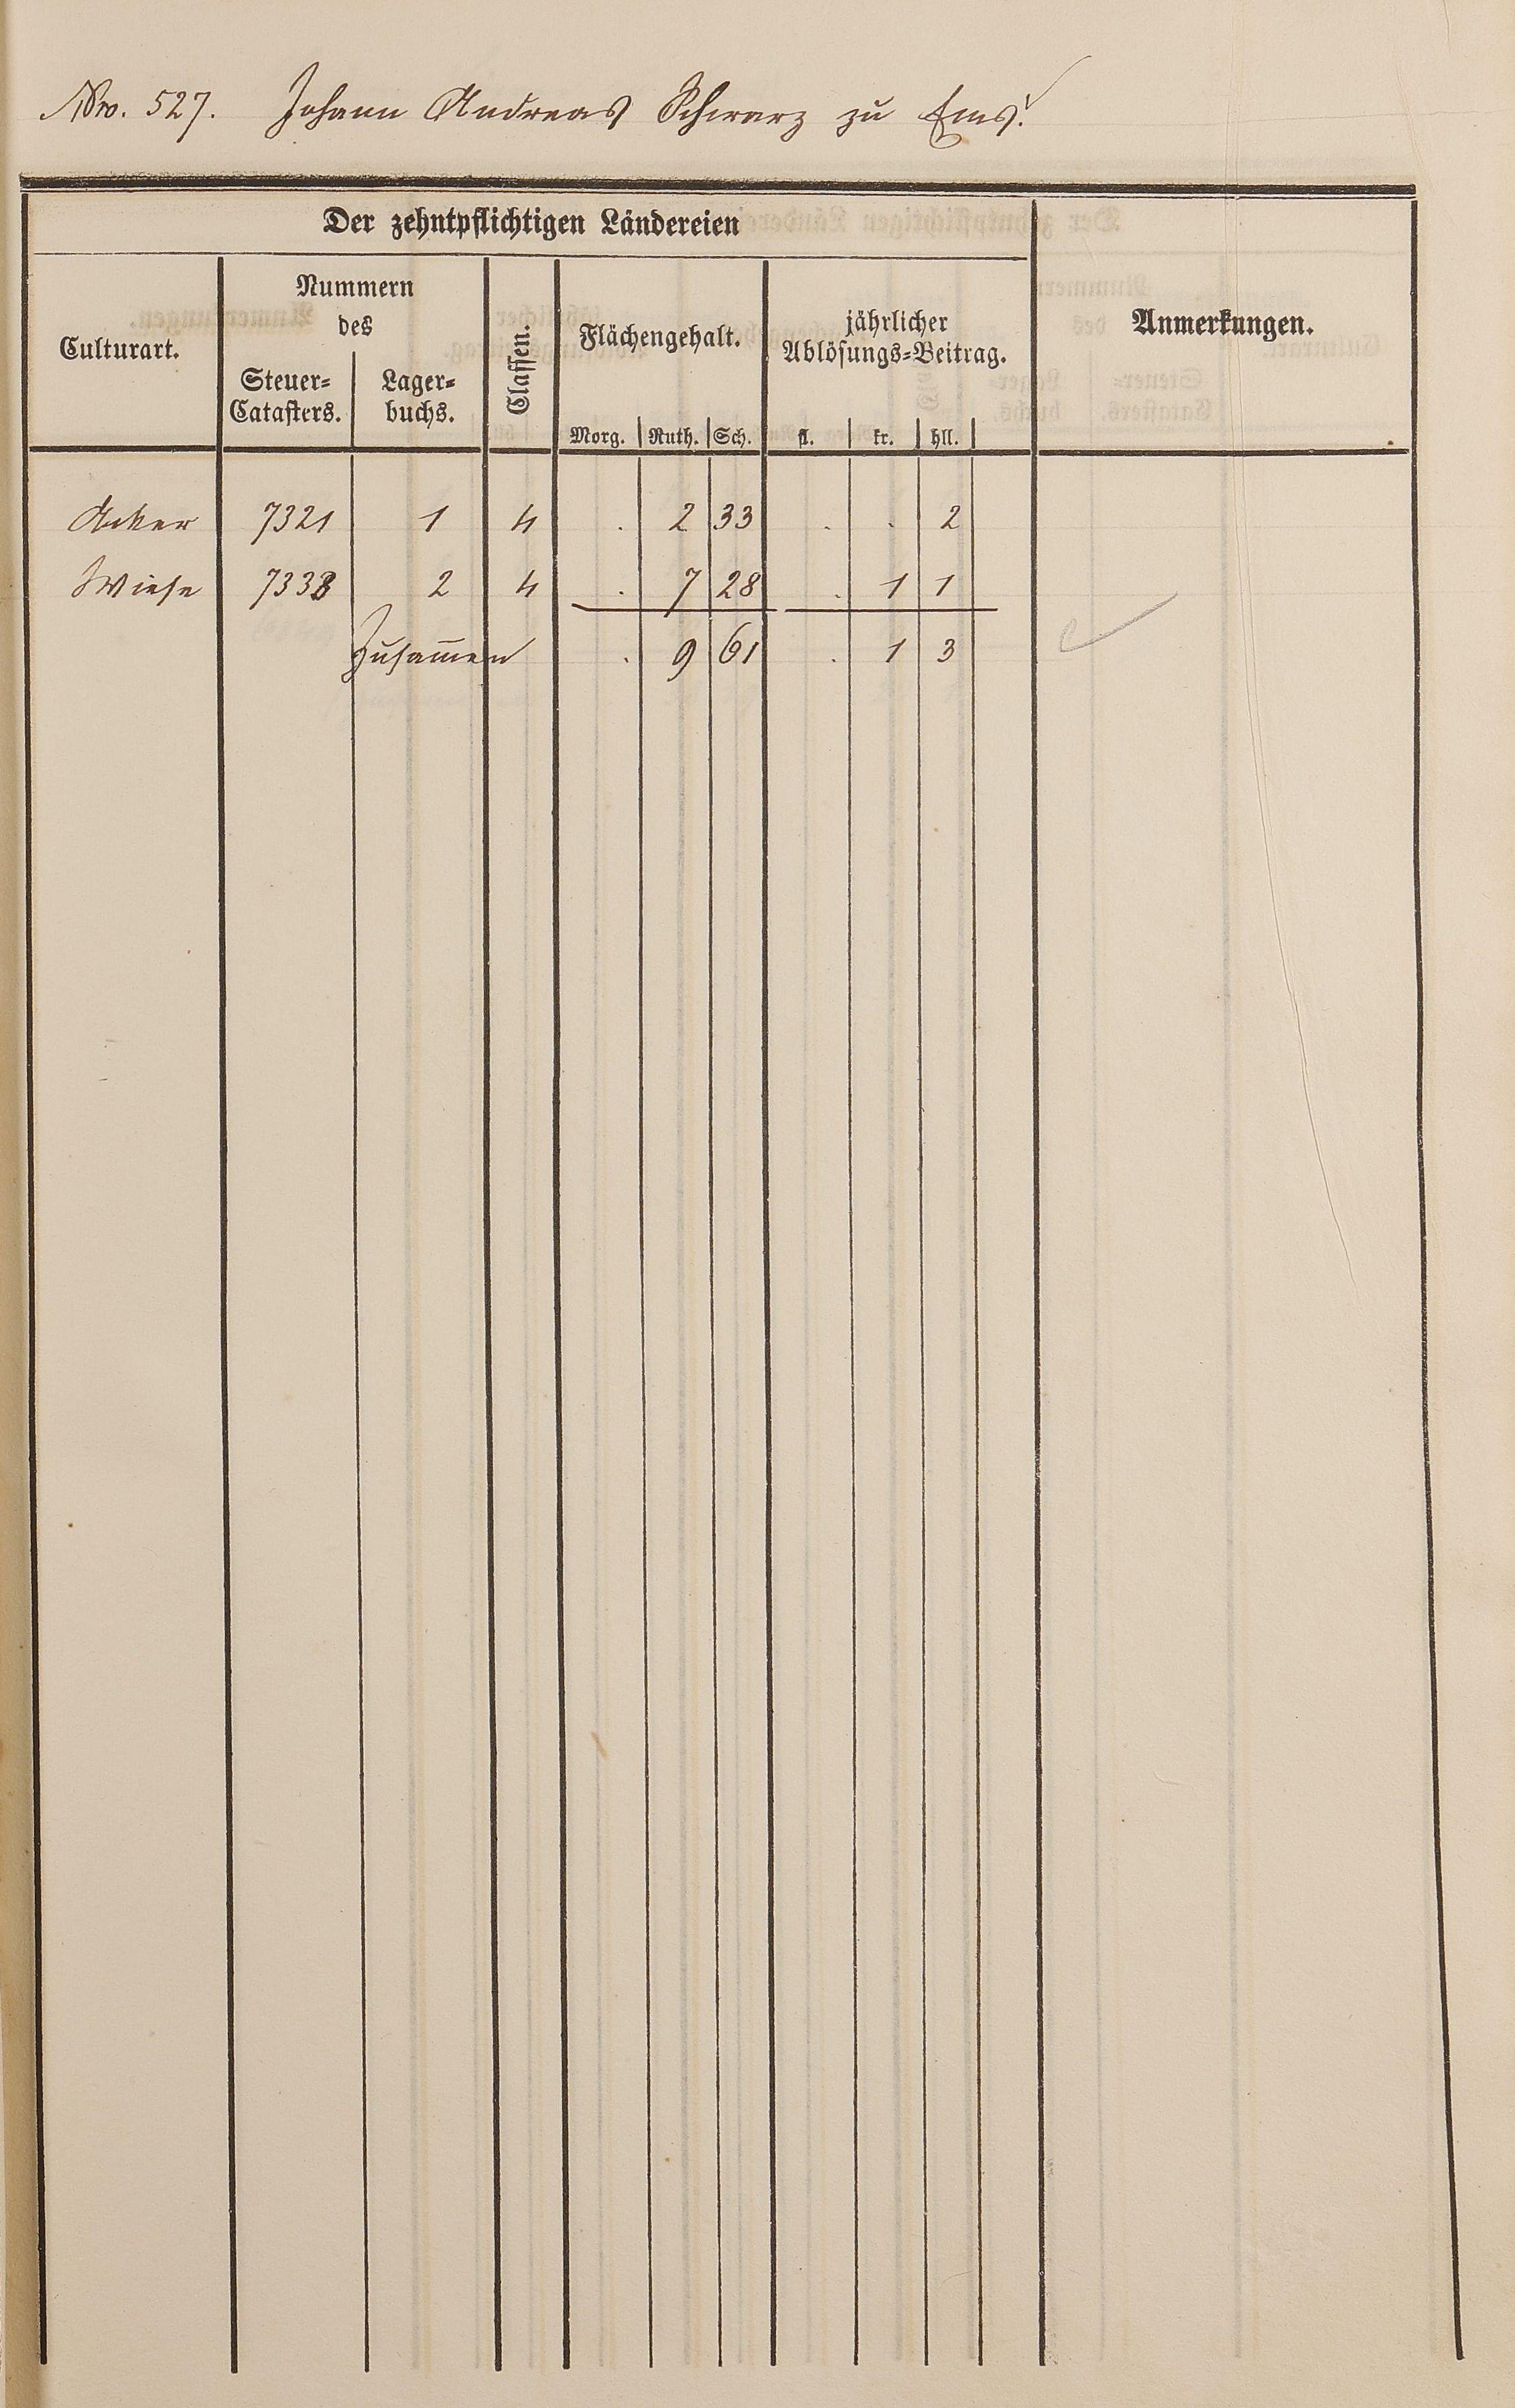 Nro. 527. Johann Andreas Schwarz zu Ems.
Der zehntpflichtigen Ländereien
Culturart.
Nummern
des
Steuer=
Catasters.
Lager=
buchs.
Classen.
Flächengehalt.
Morg. Ruth. Sch.
jährlicher
Ablösungs=Beitrag.
fl. kr. hll.
Anmerkungen.
Acker 7321 1 4 . 2 33 . . 2
Wiese 7338 2 4 . 7 28 . 1 1
Zusam̅en . 9 61 . 1 3